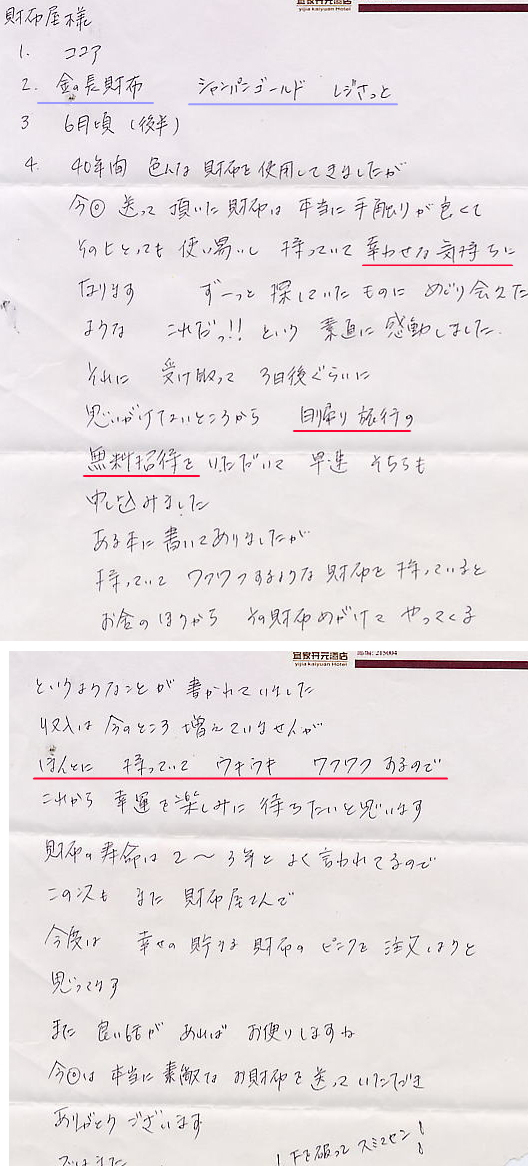 宜家开元酒店
yijia kaiyuan Hotel
財布屋様
1. ココア
2. 金の長財布 シャンパンゴールド レジさっと
3 6月頃 (後半)
4. 40年間 色んな財布を使用してきましたが
今回 送って頂いた財布は 本当に手触りが良くて
そのとっても 使い易いし 持っていて 幸わせな気持ちに
なります ずーっと 探していたものに めぐり会えた
ような これだっ!! という 素直に感動しました.
それに 受け取って 3日後ぐらいに
思いがけてないところから 日帰り旅行の
無料招待を いただいて 早速 そちらも
申し込みました
ある本に書いてありましたが
持っていて ワクワクするような財布を 持っていると
お金のほうから その財布めがけて やってくる
宜家开元酒店
yijia kaiyuan Hotel
邮编: 215004
というようなことが 書かれていました
収入は 今のところ 増えていませんが
ほんとに 持っていて ウキウキ ワクワクするので
これから 幸運を楽しみに 待ちたいと思います
財布の寿命は 2〜3年と よく言われてるので
この次も また 財布屋さんで
今度は 幸せの貯まる 財布の ピンクを 注文しようと
思ってます
また 良い話が あれば お便りしますね
今回は 本当に 素敵な お財布を送っていただき
ありがとうございます
ではまた
下を破って スミマセン!